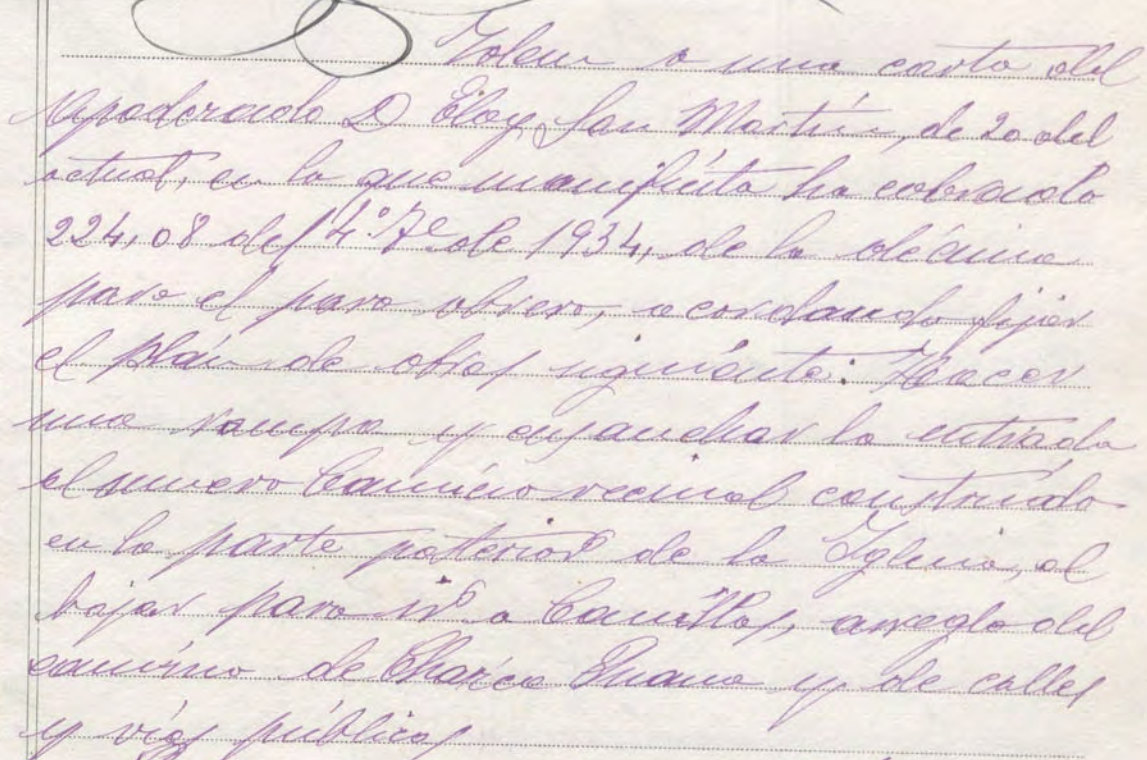 Idem a una carta del
Apoderado D Eloy San Martín, de 20 del
actual, en la que manifiesta ha cobrado
224,08 del 4º Tre de 1934, de la décima
para el paro obrero, acordando fijar
el plán de obras siguiente: Hacer
una rampa y ensanchar la entrada
al nuevo Camino vecinal construido
en la parte posterior de la Iglesia, al
bajar para ir a Canillas, arreglo del
camino de Charca y de calles
y vías públicas